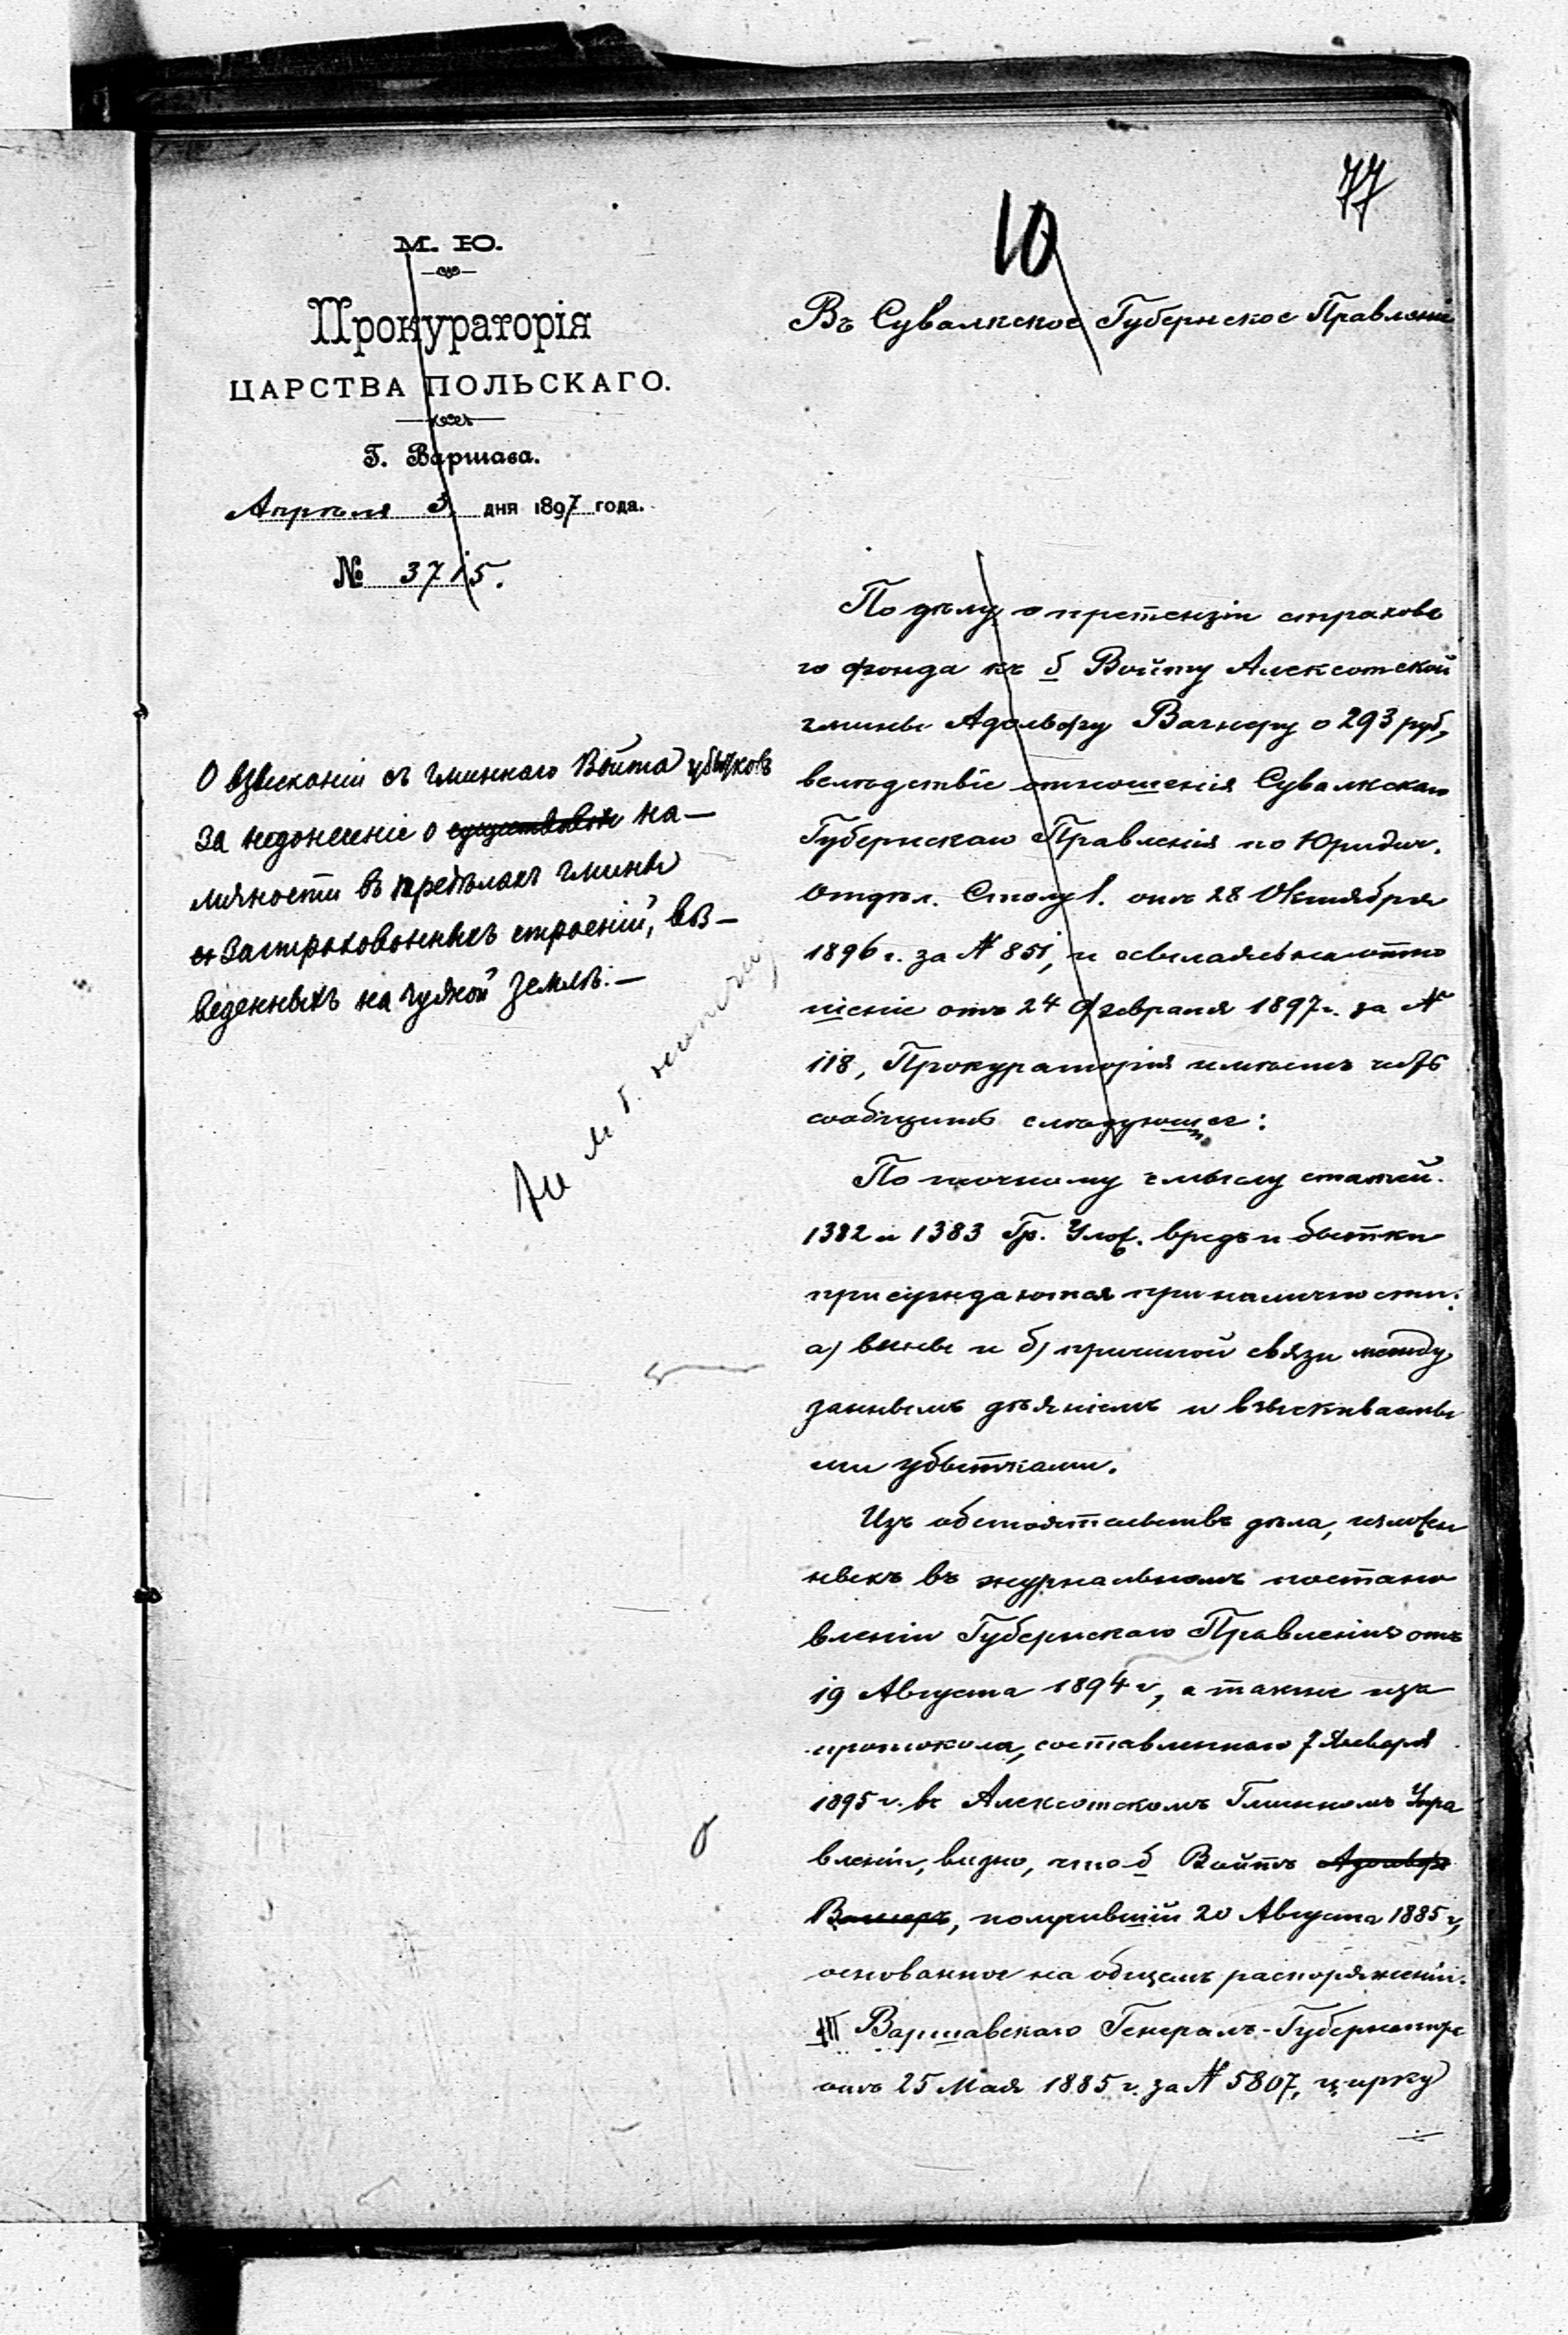 77
10
М. Ю.
Прокураторія
ЦАРСТВА ПОЛЬСКАГО.
Г. Варшава.
Апрѣля 3 дня 1897 года.
№ 3715.
Въ Сувалкское Губернское Правленіе
О взысканіи съ гминнаго Войта убытковъ
за недонесеніе о существован на-
личности въ предѣлахъ гмины
застрахованныхъ строеній, воз-
веденныхъ на чужой землѣ.-
По дѣлу о претензіи страхова
го фонда къ б Войту Алексотской
гмины Адольфу Вагнеру о 293 руб,
вслѣдствіе отношенія Сувалкскаго
Губернскаго Правленія по Юридич.
Отдѣл. Столу 1. отъ 28 Октября
1896 г. за № 851, и ссылаясь на отно
шеніе отъ 24 Февраля 1897 г. за №
118, Прокураторія имѣетъ честь
сообщить слѣдующее:
По точному смыслу статей
1382 и 1383 Гр. Улож. вредъ и бытки
присуждаются при наличности:
а) вины и б) причиной связи между
заннымъ дѣяніемъ и взыскиваемы
ми убытками.
Изъ обстоятельствъ дѣла, изложен
ныхъ въ журнальномъ постано
вленіи Губернскаго Правленія отъ
19 Августа 1894 г, а также изъ
протокола, составленнаго 7 Января
1895 г. въ Алексотскомъ Гминномъ Упра
вленіи, видно, что б Войтъ Адольфъ
Вагнеръ, получившій 20 Августа 1885 г,
основанное на общемъ распоряженіи
Варшавскаго Генералъ-Губернатора
отъ 25 Мая 1885 г. за № 5807, цирку